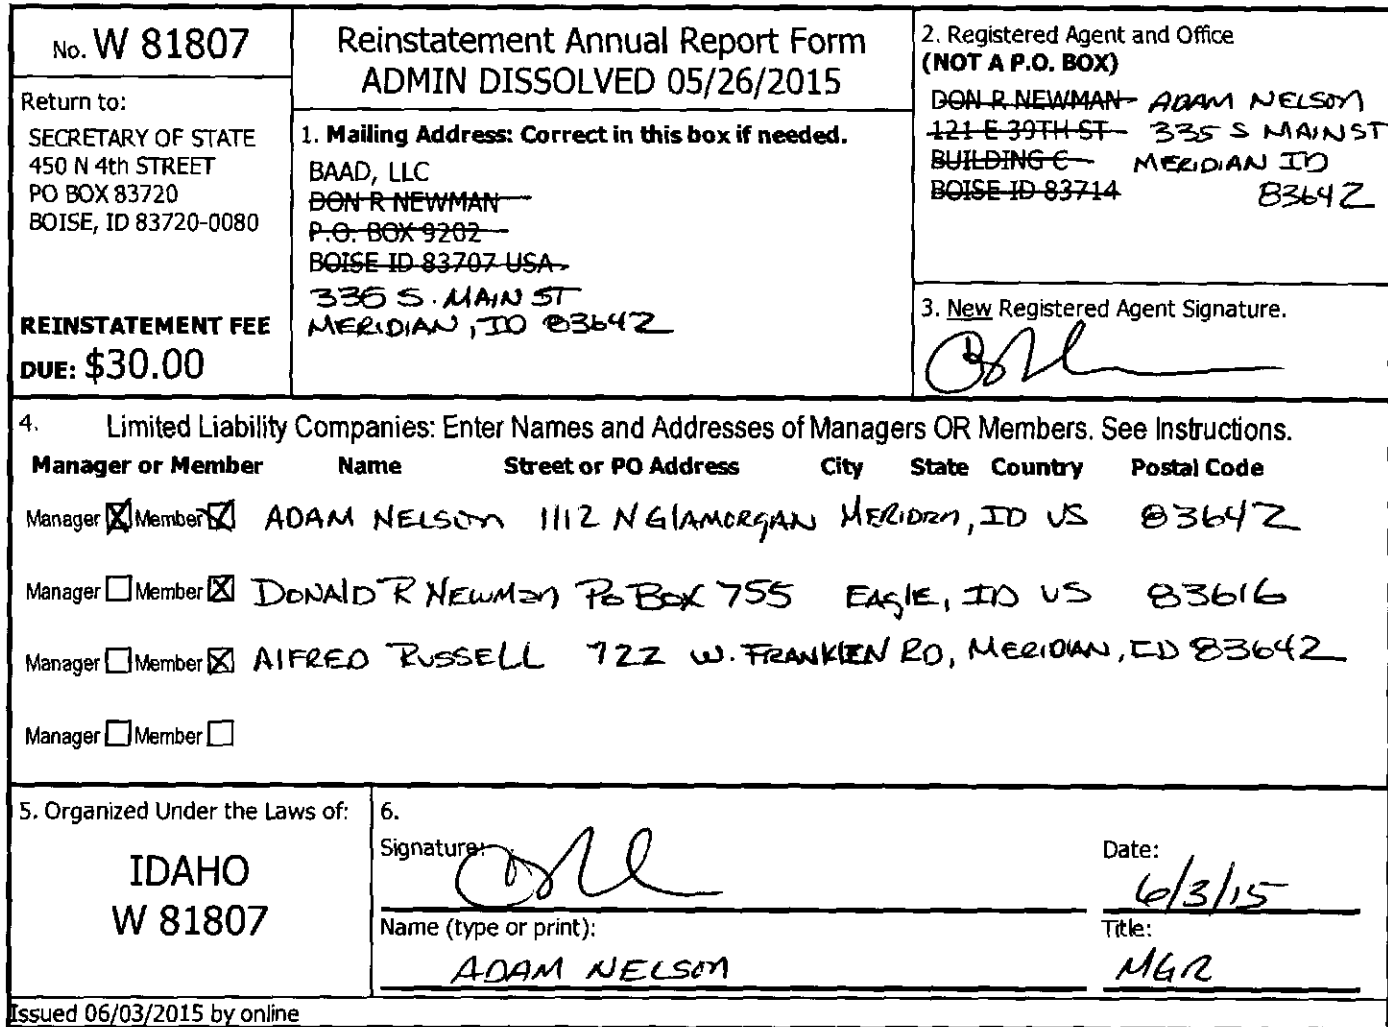 No. W 81807
Return to:
SECRETARY OF STATE
450 N 4th STREET
PO BOX 83720
BOISE, ID 83720-0080
REINSTATEMENT FEE
DUE: $30.00
Reinstatement Annual Report Form
ADMIN DISSOLVED 05/26/2015
1. Mailing Address: Correct in this box if needed.
BAAD, LLC
DON R NEWMAN
P.O. BOX 9202
BOISE ID 83707 USA
335 S. MAIN ST
MERIDIAN, ID 83642
2. Registered Agent and Office
(NOT A P.O. BOX)
DON R NEWMAN ADAM NELSON
121 E 39TH ST 335 S MAIN ST
BUILDING C MERIDIAN ID
BOISE ID 83714 83642
3. New Registered Agent Signature.
4. Limited Liability Companies: Enter Names and Addresses of Managers OR Members. See Instructions.
Manager or Member Name Street or PO Address City State Country Postal Code
Manager Member ADAM NELSON 1112 N GLAMORGAN MERIDIAN, ID US 83642
Manager Member DONALD R NEWMAN PO BOX 755 EAGLE, ID US 83616
Manager Member ALFRED RUSSELL 722 W. FRANKLIN RD, MERIDIAN, ID 83642
Manager Member
5. Organized Under the Laws of:
IDAHO
W 81807
6.
Signature:
Date:
6/3/15
Name (type or print):
ADAM NELSON
Title:
MGR
Issued 06/03/2015 by online